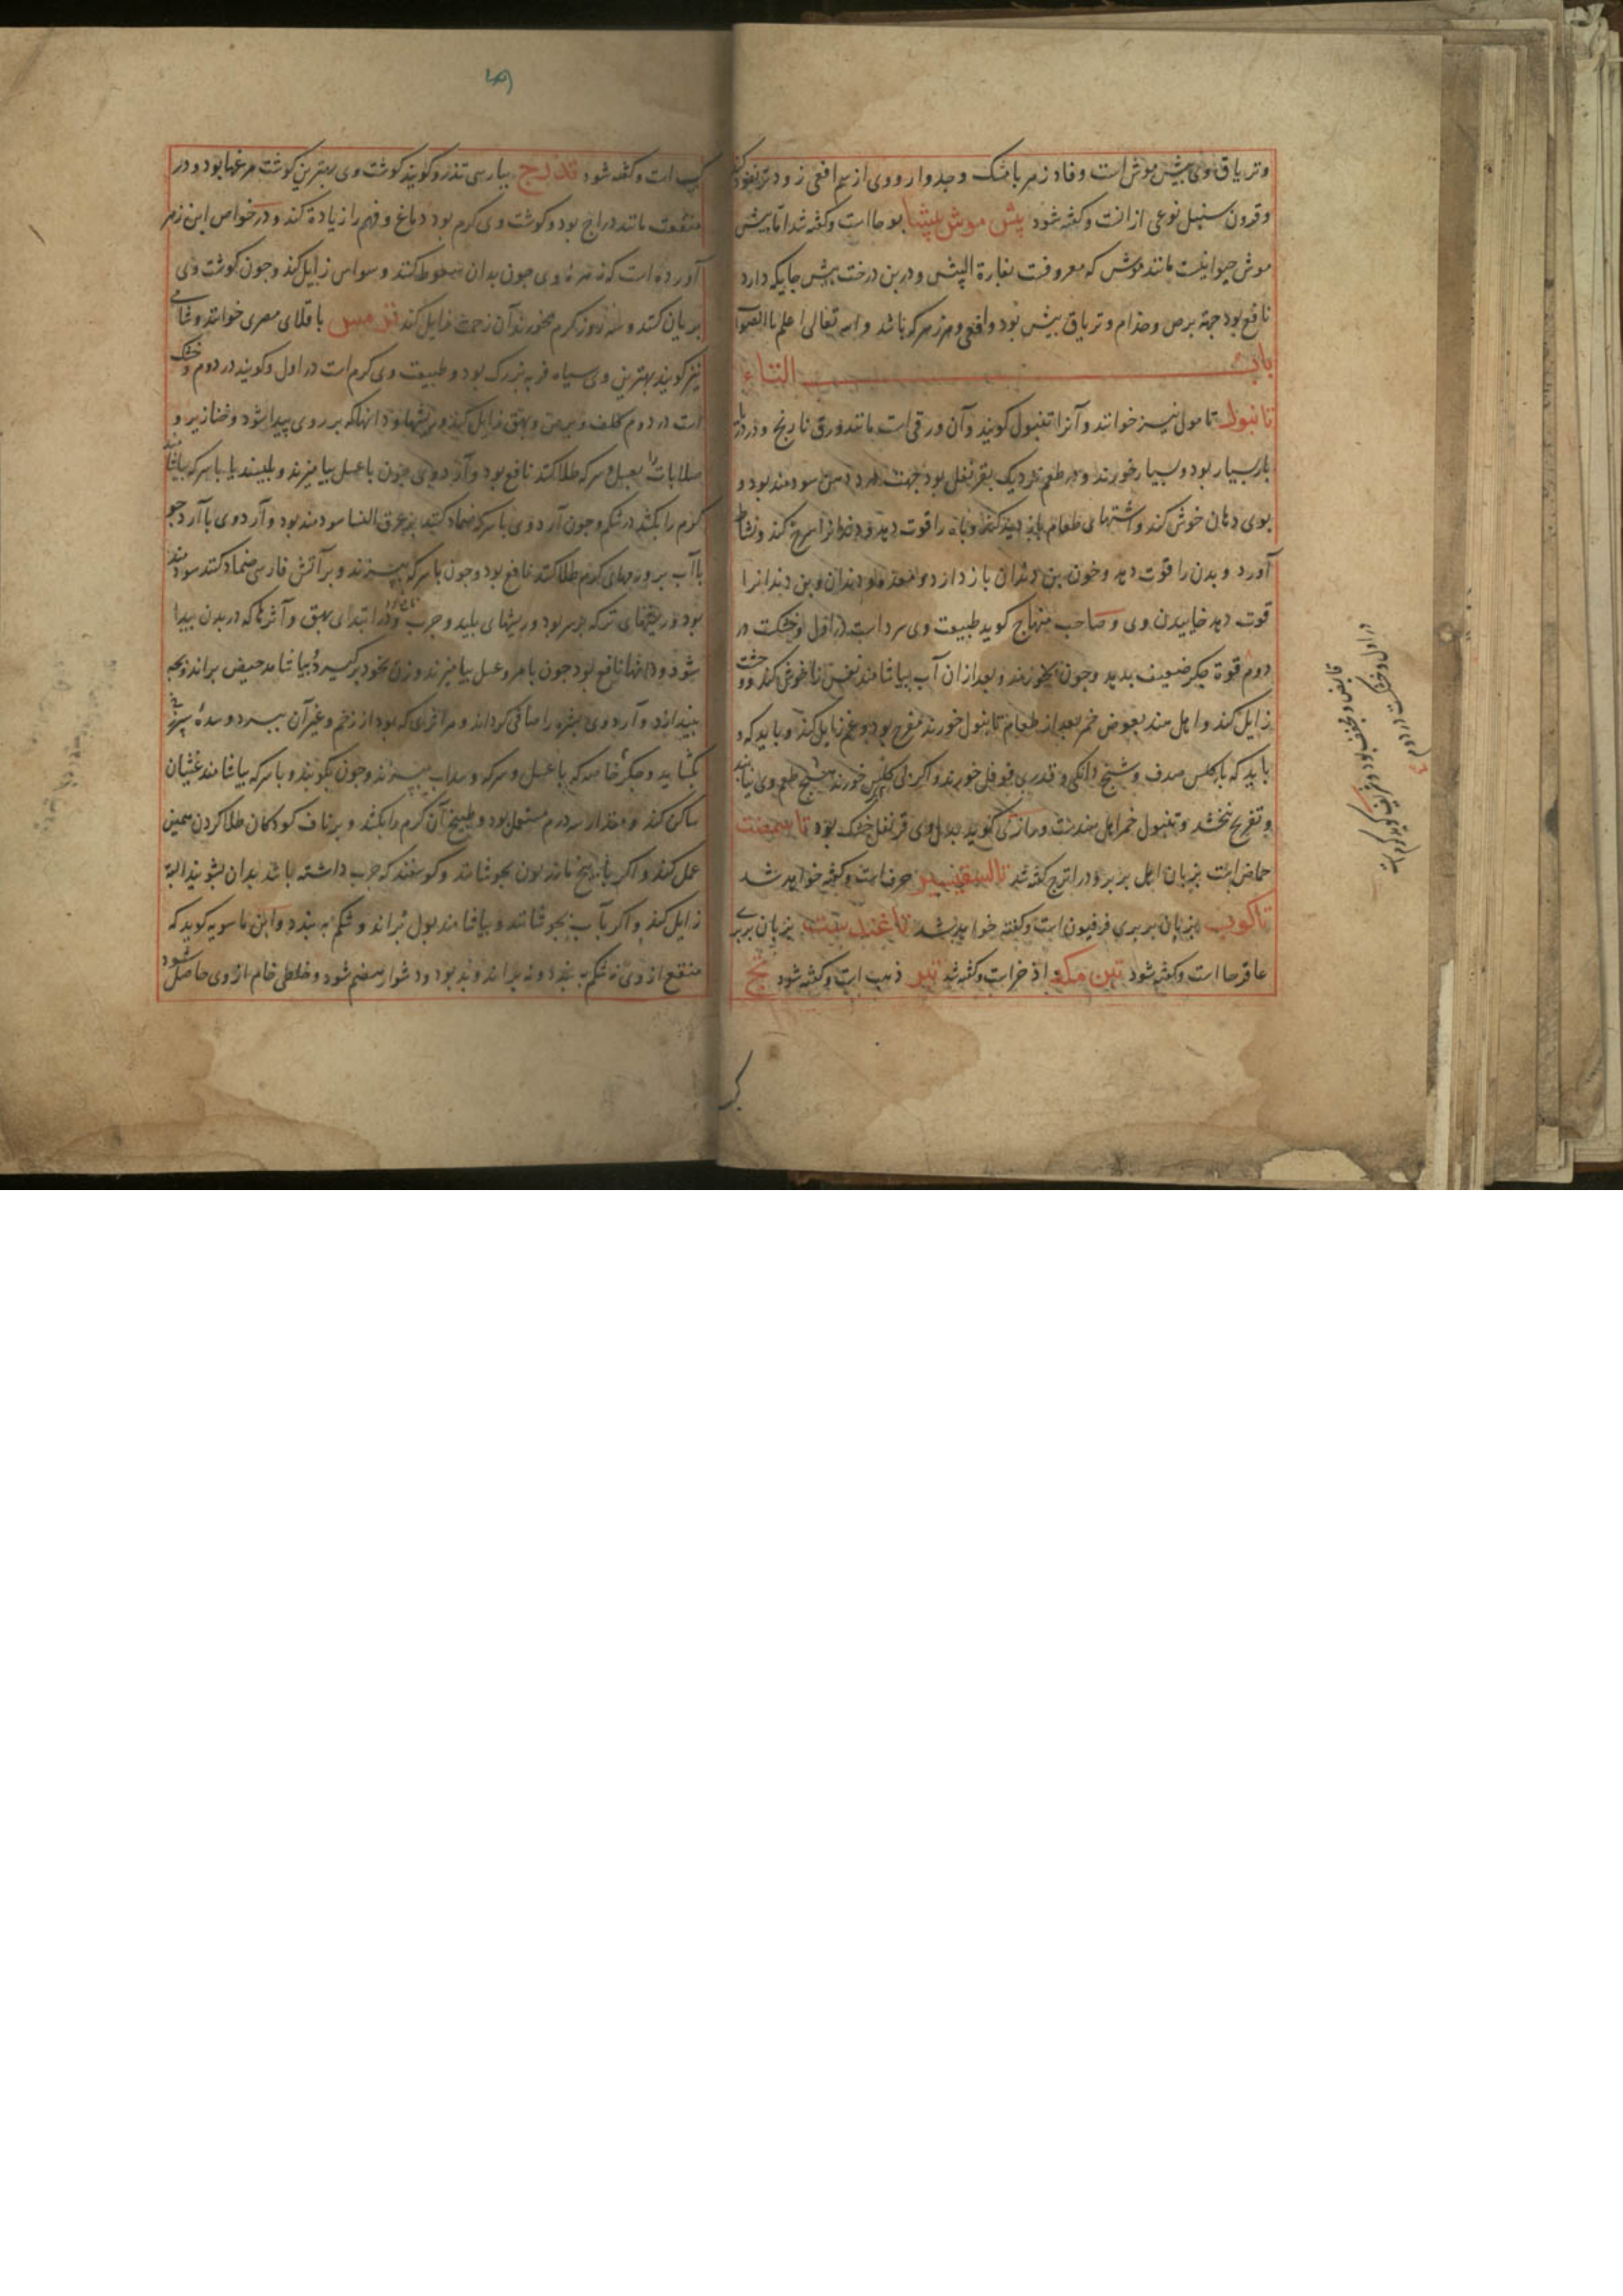 وتریاق وی بیش موش است وفاد زهر با مشک و جدوار ووی از سم افعی زودتر نفوذ کند
وقرون سنبل نوعی از انست وکفته شود بیش موش بیشا بوحا است وکفته شد اما بیش
موش حیوانیست مانند موش که معروفست بفارة البیش و در بن درخت بیش جایکه دارد
نافع بود جهة برص وجذام وتریاق بیش بود وافعی وهر زهر که باشد والله تعالی اعلم بالصواب
باب التاء
تانبول تامول نیز خوانند وآنرا تنبول کویند وآن ورقی است مانند ورق نارنج ودر
بار بسیار بود وبسیار خورند ودر طعم نزدیک بقرنفل بود جهت درد دهن سودمند بود و
بوی دهان خوش کند واشتهای طعام بدید کند وباه را قوت دهد ودندانرا سرخ کند ونشاط
آورد وبدن را قوت دهد وخون بن دندان باز دارد ومعده ودندان وبن دندانرا
قوت دهد خاییدن وی وصاحب منهاج کوید طبیعت وی سرد است در اول وخشکست در
دوم قوة جکر ضعیف بدهد وچون بخورند وبعد از ان آب بیاشامند نفس را خوش کند و وحشت
زایل کند واهل هند بعوض خمر بعد از طعام تانبول خورند مفرح بود وغم زایل کند وباید که
باید که با کلس صدف وشنج دانکی وقدری فوفل خورند واکر بی کلس خورند هیچ طعم وی نیابند
وتفریح نبخشد وتنبول خمر اهل هندست ورازی کوید بدل وی قرنفل خشک بود تاسمعنت
حماض است بزبان اهل بربر ودر اترج کفته شد تالسقیس حرف است وکفته خواهد شد
تاکوب بزبان بربری فرفیون است وکفته خواهد شد تاغندست بزبان بربری
عاقرحا است وکفته شود تبن مکه اذخر است وکفته شد تبر ذهب است وکفته شود تج
کر
در اول وخشکست در دوم
قابض ومجفف بود
کبست است وکفته شود تذرج بپارسی تذرو کویند کوشت وی بهترین کوشت مرغها بود ودر
منفعت مانند دراج بود وکوشت وی کرم بود دماغ وفهم را زیادة کند ودر خواص ابن زهر
آورده است که زهره وی چون بدان سعوط کنند وسواس زایل کند وچون کوشت وی
بریان کنند وسه روز کرم بخورند آن زحمت زایل کند ترمس باقلای مصری خوانند وشامی
نیز کویند بهترین وی سیاه فربه بزرک بود وطبیعت وی کرم است در اول وکویند در دوم وخشک
است در دوم کلف وبرص وبهق زایل کند وریشها ودانها که بر روی پیدا شود وخنازیر و
صلابات را بعسل وسرکه طلا کنند نافع بود وآرد وی چون با عسل بیامیزند وبلیسند یا با سرکه بیاشامند
کرم را بکشد در شکم وچون آرد وی با سرکه ضماد کنند بر عرق النسا سودمند بود وآرد وی با آرد جو
با آب بر ورمهای کرم طلا کنند نافع بود وچون با سرکه بپزند وبر آتش فارسی ضماد کنند سودمند
بود وریشهای تر که بر سر بود وریشهای پلید وجرب ودر ابتدای بهق وآثرها که در بدن پیدا
شود ودانها نافع بود چون با مر وعسل بیامیزند وزن بخود برکیرد یا بیاشامد حیض براند وبچه
بیندازد وآرد وی بشره را صافی کرداند وهر اثری که بود از زخم وغیر آن ببرد وسدهٔ سپرز
بکشاید وجکر خاصه که با عسل وسرکه وسداب بپزند وچون بکوبند وبا سرکه بیاشامند غثیان
ساکن کند ومقدار سه درم مستعمل بود وطبیخ آن کرم را بکشد وبر ناف کودکان طلا کردن همین
عمل کند واکر با بیخ مازریون بجوشانند وکوسفند که جرب داشته باشد بدان بشویند البته
زایل کند واکر با آب بجوشانند وبیاشامند بول براند وشکم به بندد وابن ماسویه کوید که
منقع از وی نه شکم به بندد ونه براند وبد بود ودشوار هضم شود وخلطی خام از وی حاصل شود